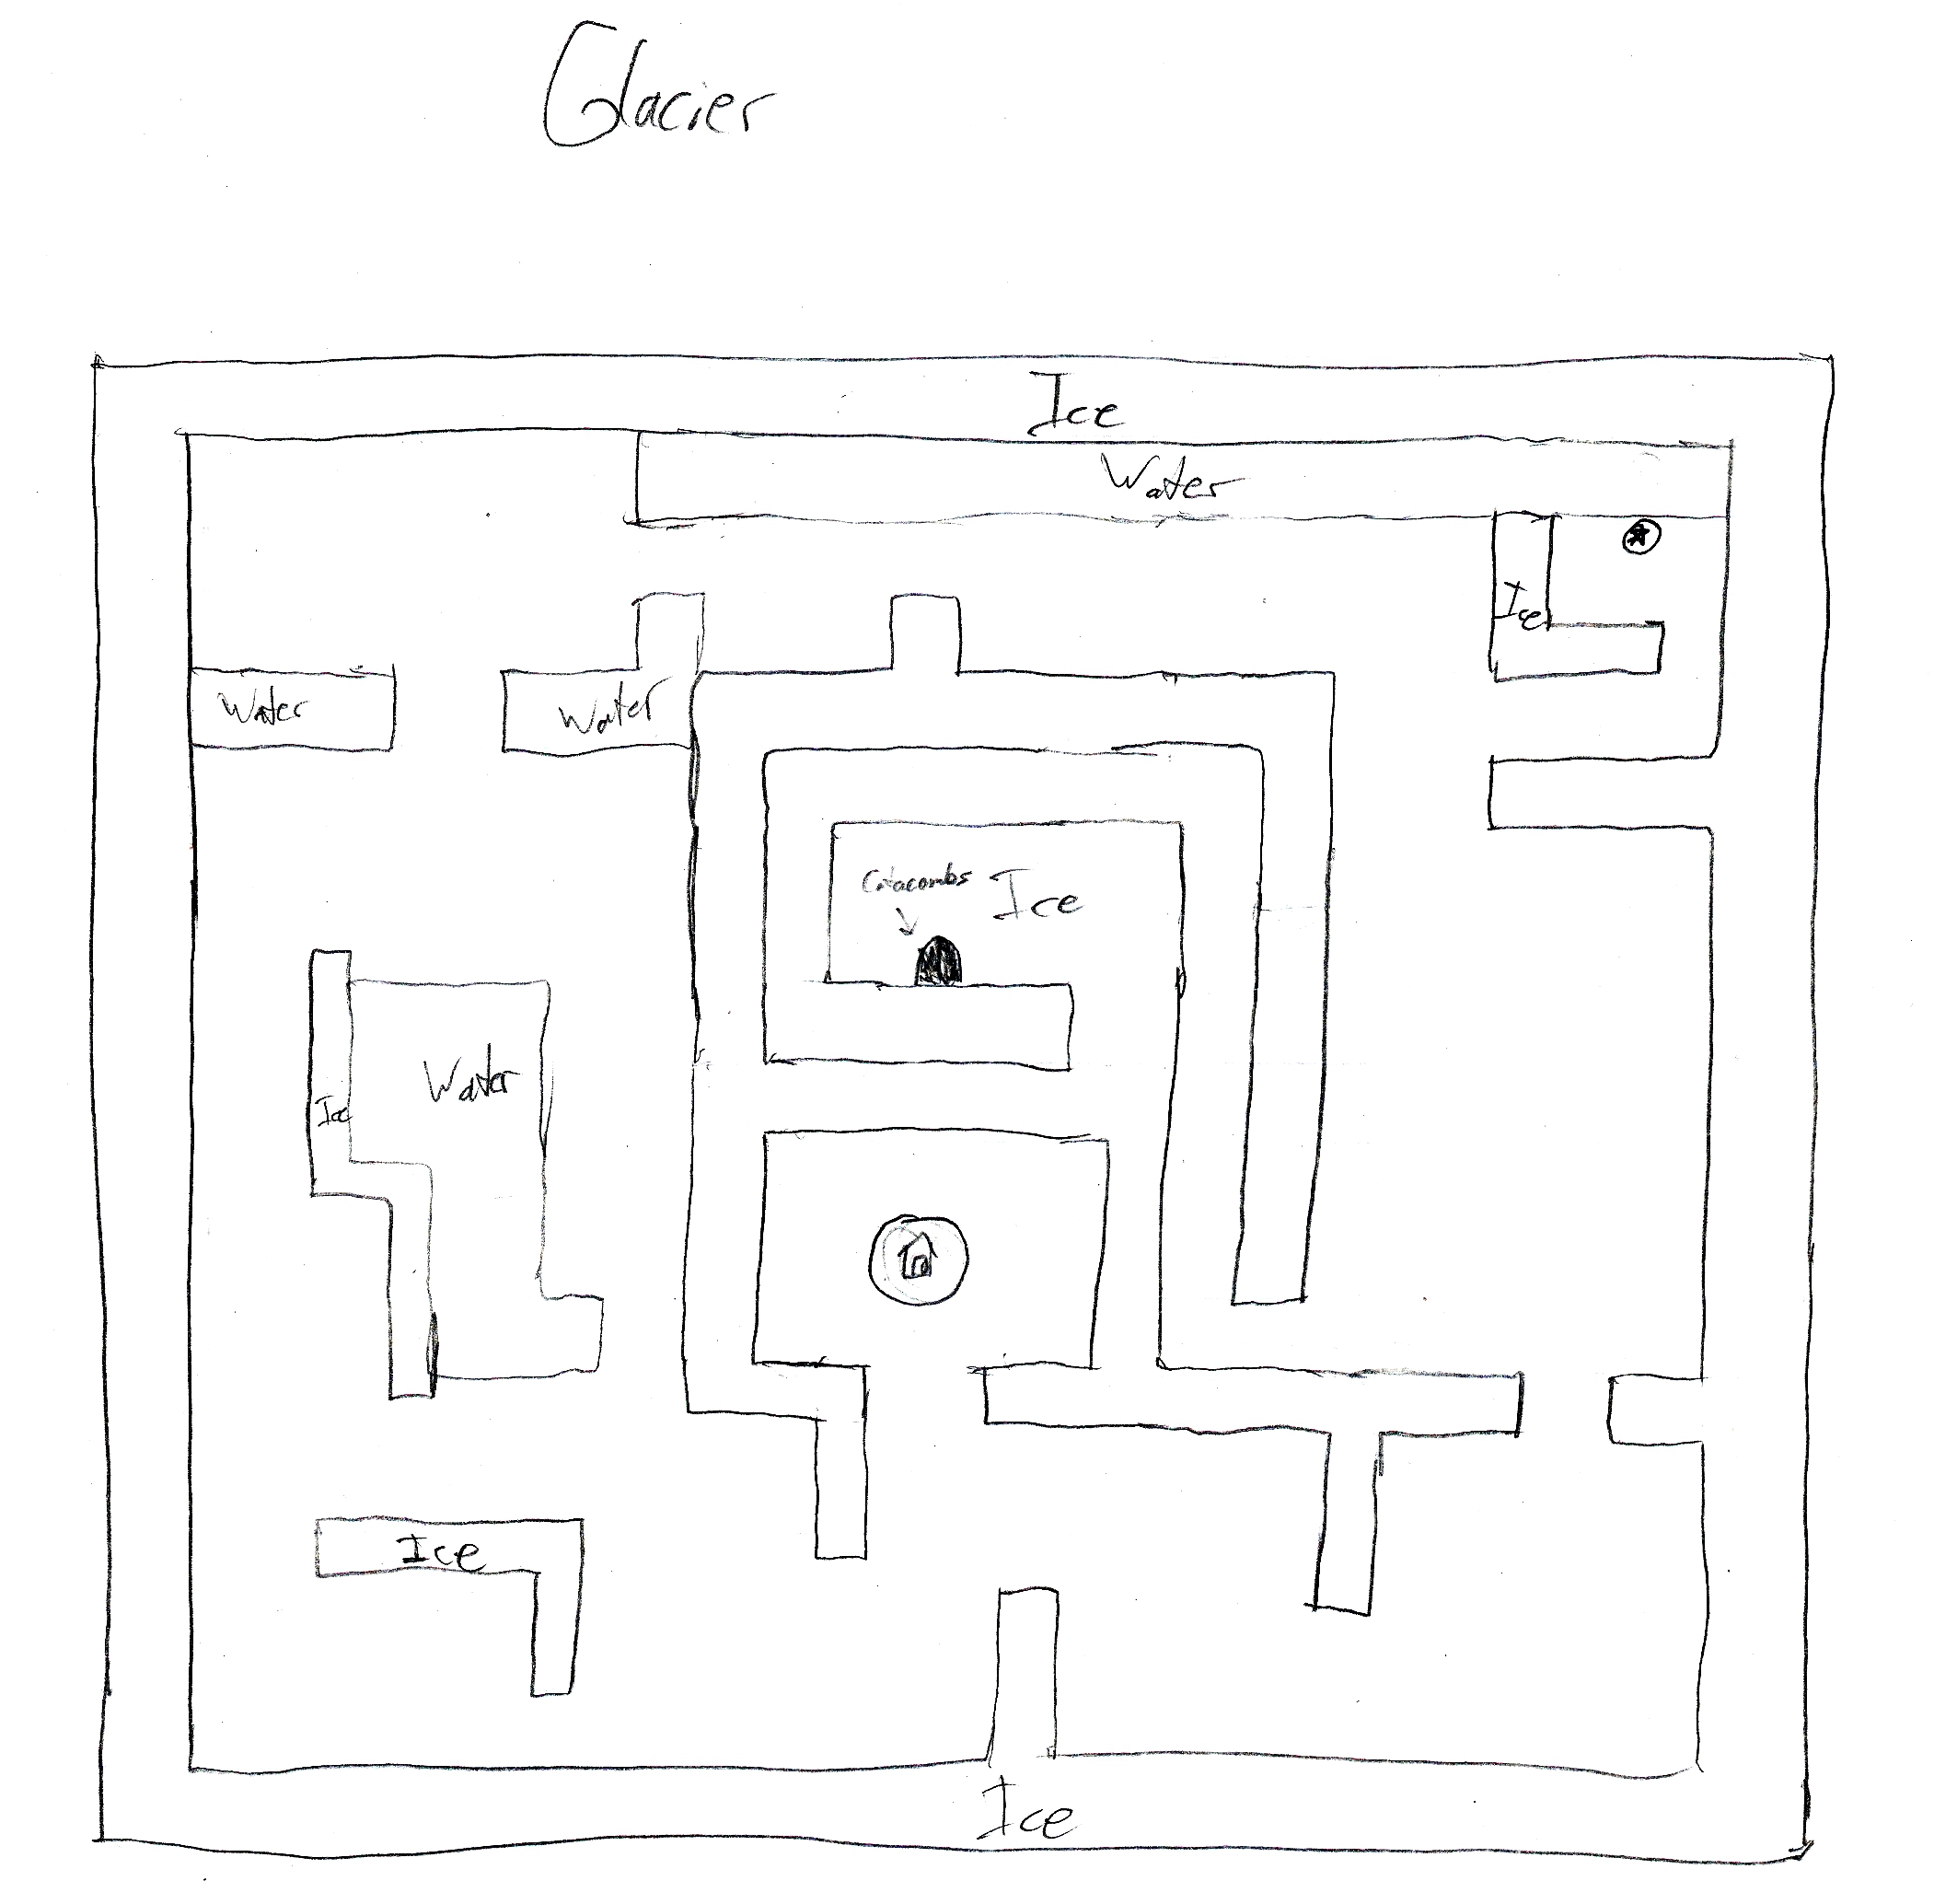 Glacier
Ice
Water
Ice
Water
Water
Catacombs
Ice
Water
Ice
Ice
Ice